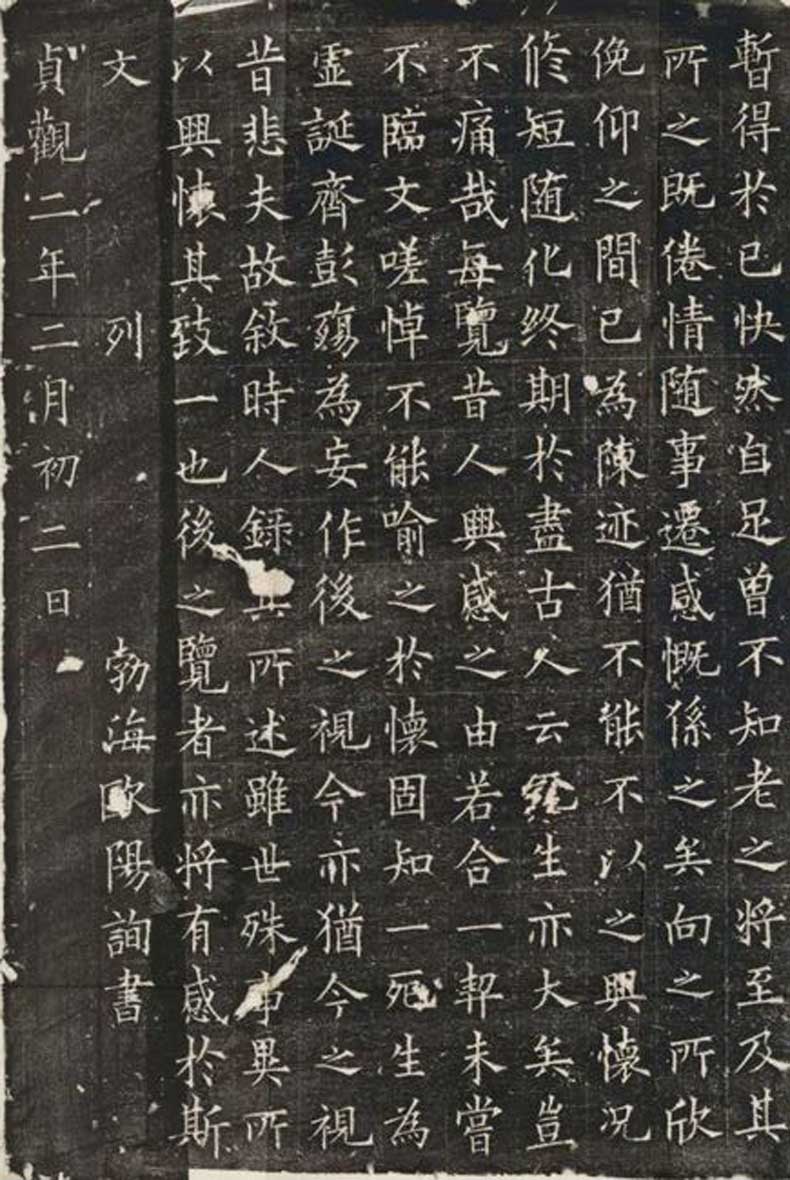 暫得於已快然自足曾不知老之將至及其
所之既倦情随事遷感慨係之矣向之所欣
俛仰之間已為陳迹猶不能不以之興懷况
修短随化终期於盡古人云死生亦大矣豈
不痛哉每覽昔人興感之由若合一契未嘗
不臨文嗟悼不能喻之於懷固知一死生為
虚誕齊彭殤為妄作後之視今亦猶今之視
昔悲夫故敘時人錄其所述雖世殊事異所
以興懷其致一也後之覽者亦将有感於斯
文 列 勃海歐陽詢書
貞觀二年二月初二日